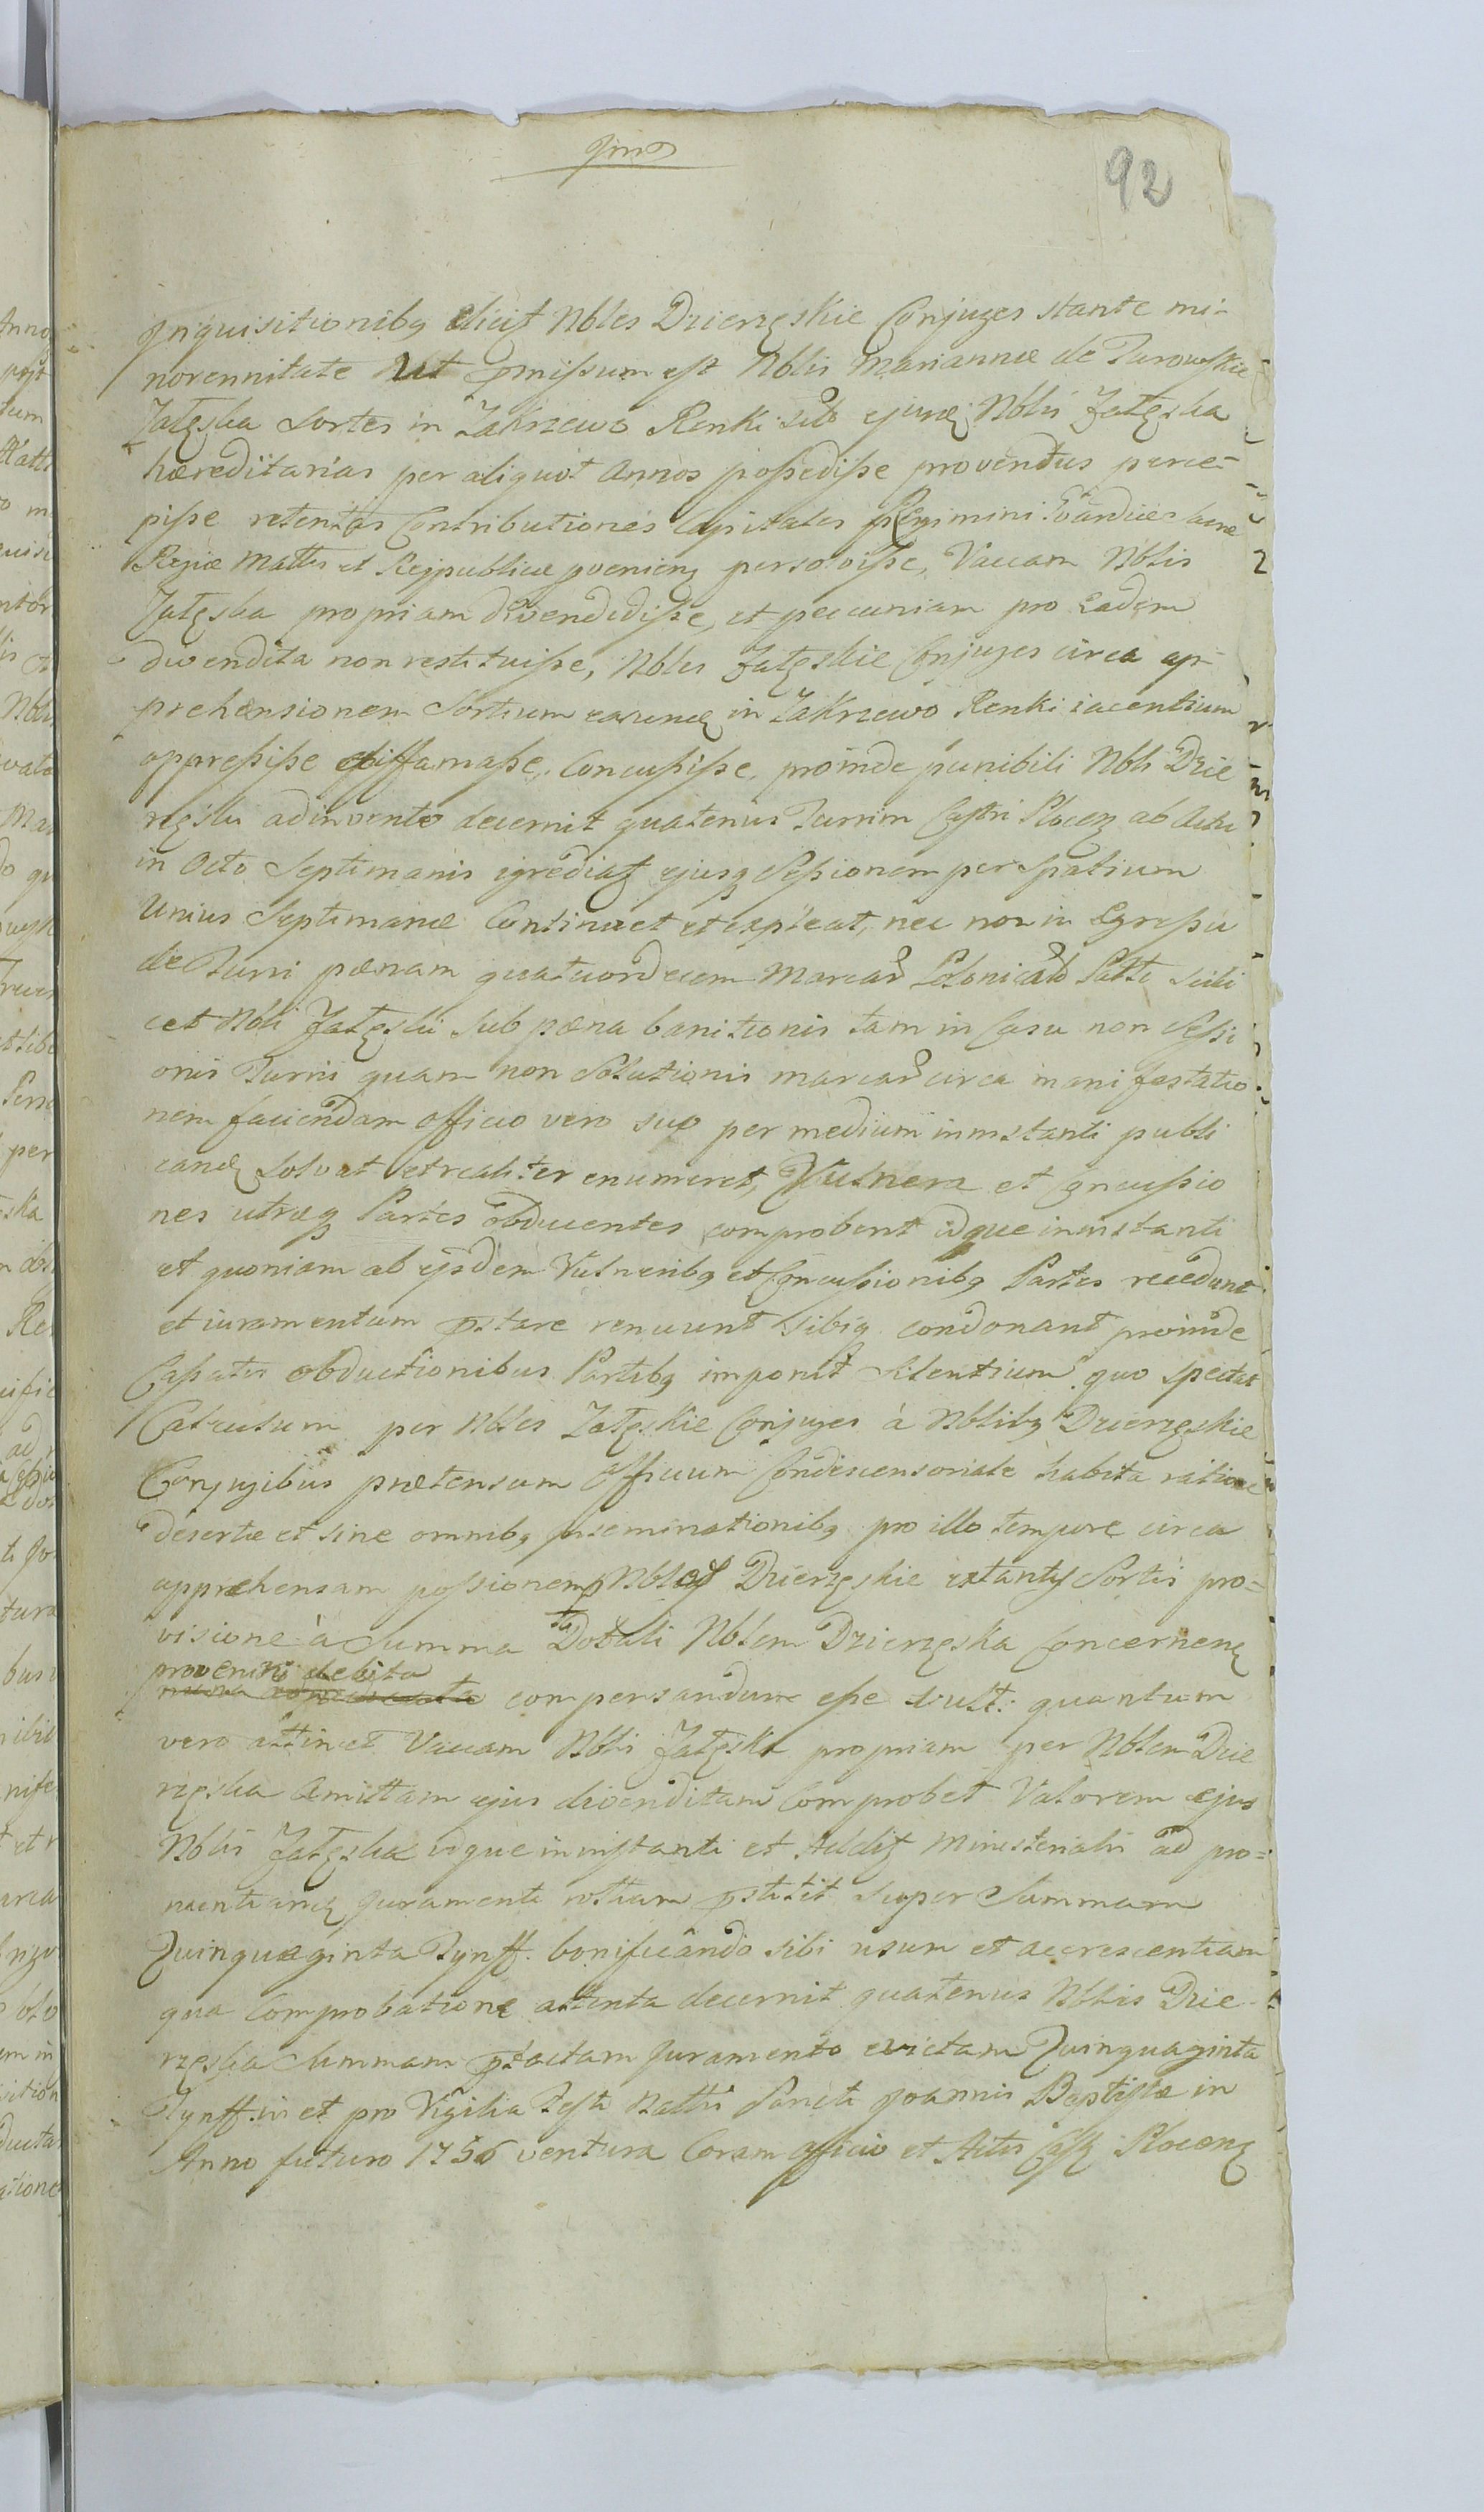 92
Inquisitionibq elicit Nbles Dzierzęskie Conjuges stante mi-
norennitate ut pmissum est Nblis Mariannæ de Turowskie
Załęska Sortes in Zakrzewo Renki Nblis Załęska
hæreditarias per aliquot Annos possedisse proventus perce-
pisse retentas Contributiones Capitales Regimini Gvardies
Regiæ Mattis et Reipublicæ pvenien persolvisse, Vaccam Nblis
Załęska propriam divendidisse, et peccuniam pro eadem
divendita non restituisse, Nbles Załęskie Conjuges circa ap-
prehensionem Sortium earund in Zakrzewo Renki iacentium
oppressisse diffamasse, Concussisse, proinde punibili Nbli Dzie
rzęski adinvento decernit quatenus Turrim Castri Plocen ab Actu
in Octo Septimanis igrediat ejusq Sessionem per Spatium
Unius Septimanæ Continuet et expleat, nec non in Egressu
de Turri pœnam quatuordecem Marcar Polonical Parti scili
cet Nbli Załęski sub pœna banitionis tam in Casu non Sessi
onis Turris quam non Solutionis marcar circa manifestatio
nem faciendam officio vero suo per medium ininstanti publi
cand solvat et realiter enumeret, Vulnera et Concussio
nes utræq Partes obducentes comprobent idque ininstanti
et quoniam ab ijsdem Vulneribq et Concussionibq Partes recedunt
et iuramentum pstare renuunt sibiq condonant proinde
Cassatis obductionibus Partibq imponit Silentium quo spectat
Calculum per Nbles Załęskie Conjuges à Nblibq Dzierzęskie
Conjugibus prætensum Officium Condescensoriale habita ratione
desertæ et sine omnibq inseminationibq pro illo tempore circa
apprehensam possionem p Nbles Dzierzęskie extantis Sortis pro-
visione à Summa Dotali Nblem Dzierzęska Concernen
provenire debita
compensandum esse vult: quantum
vero attinet Vaccam Nblis Załęska propriam per Nblem Dzie
rzęska Amittam ejus divenditam Comprobet Valorem ejus
Nblis Załęska idque ininstanti et Addit Ministerialis ad pro-
nuntiand juramenti rottam pstitit super Summam
Quinquaginta Tynff. bonificando sibi usum et accrescentiam
qua Comprobatione attenta decernit quatenus Nblis Dzie
rzęska Summam ptactam Juramento evictam Quinquaginta
Tynff. in et pro Vigilia Festi Nattis Sancti Joannis Baptistæ in
Anno futuro 1756 ventura Coram officio et Actis Castr Plocen